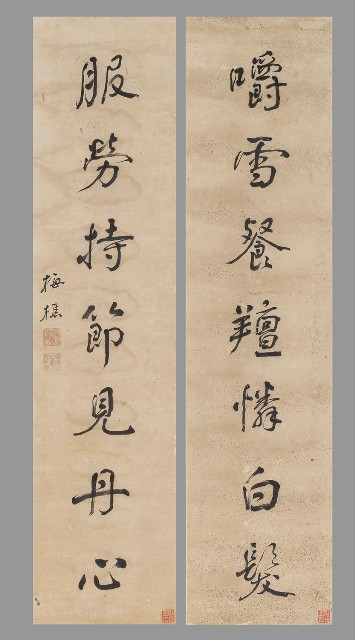 嚼雪餐氊憐白髮
服勞持節見丹心
梅樵